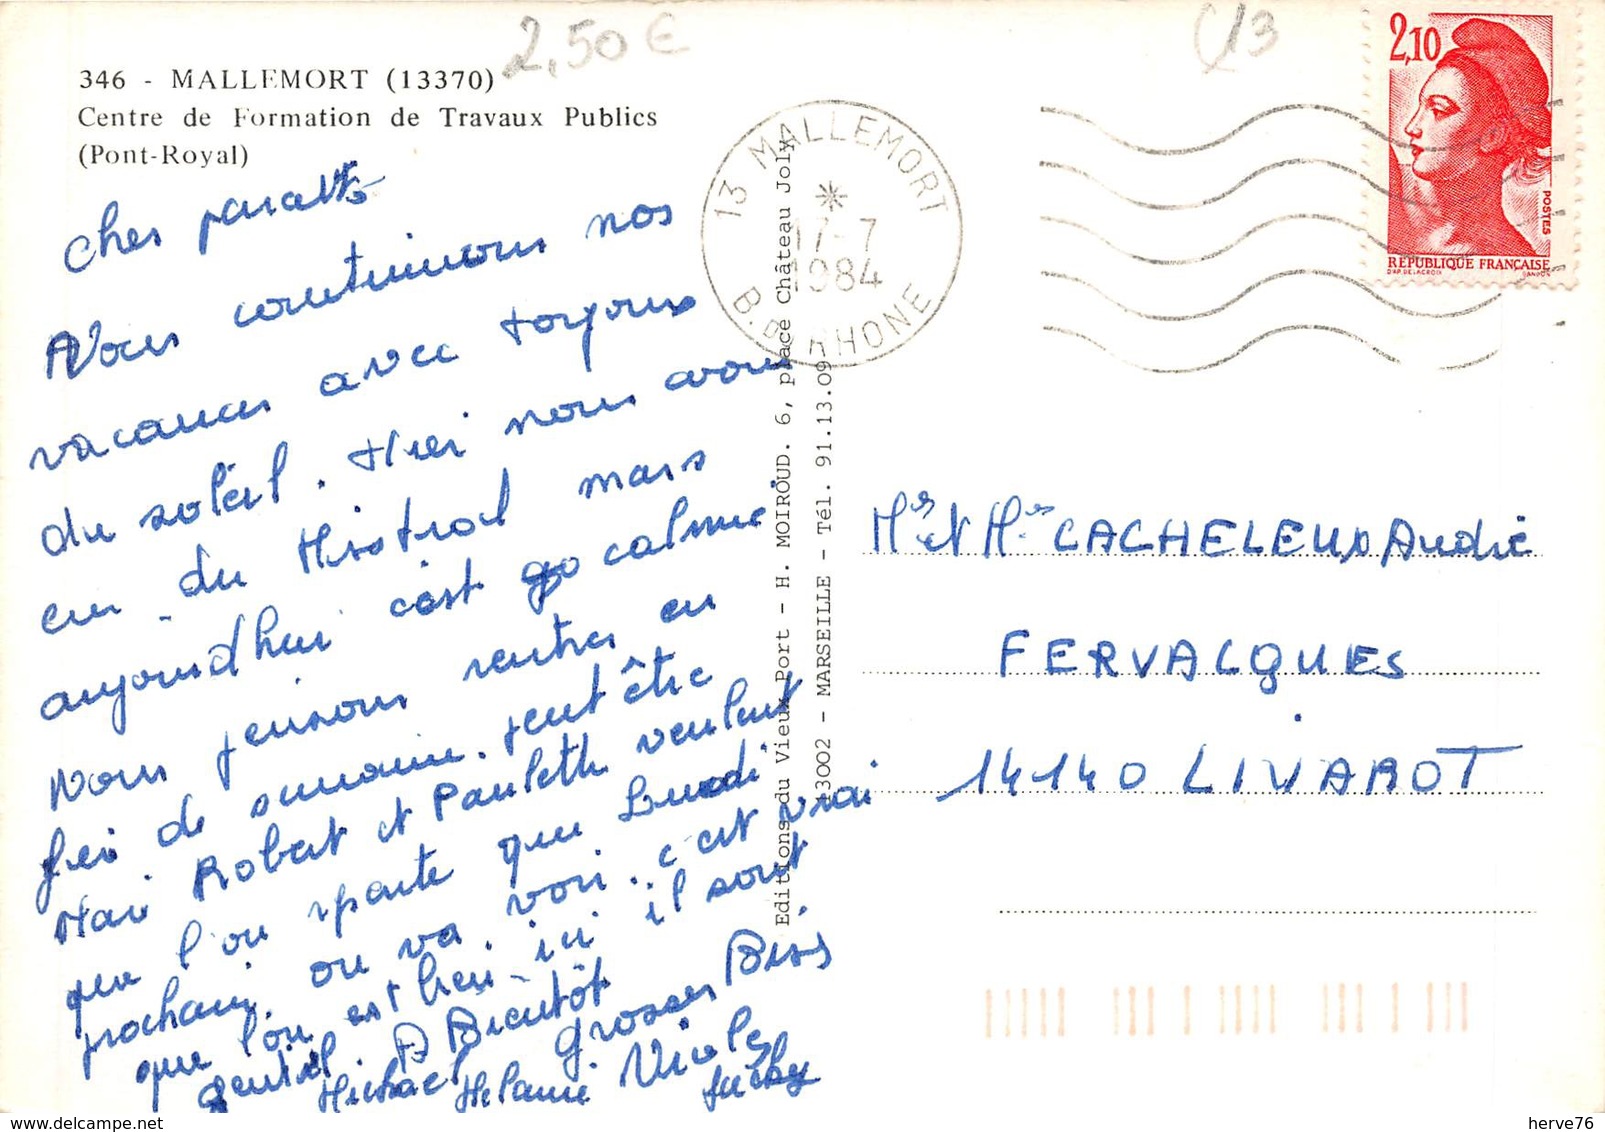 2,50 €
13
346 - MALLEMORT (13370)
Centre de Formation de Travaux Publics
(Pont-Royal)
Chers parents
Nous continuons nos
vacances avec toujours
du soleil. Hier nous avons
eu du Mistral mais
aujourd'hui c'est calme.
Nous pensions rentrer en
fin de semaine. peut être
Mais Robert et Paulette veulent
que l'on parte que Lundi
prochain. on va voir. c'est vrai
que l'on est bien ici il sont
gentil. A Bientôt Grosses Bises
Michael Mélanie Nicole
13 MALLEMORT
17-7
1984
B. DU RHONE
Editions du Vieux Port - H. MOIROUD. 6, place Château Joly
13002 - MARSEILLE - Tél. 91.13.09
2,10
POSTES
REPUBLIQUE FRANÇAISE
D'AP. DELACROIX GANDON
Mr et Mme CACHELEUX André
FERVACQUES
14140 LIVAROT
herve76